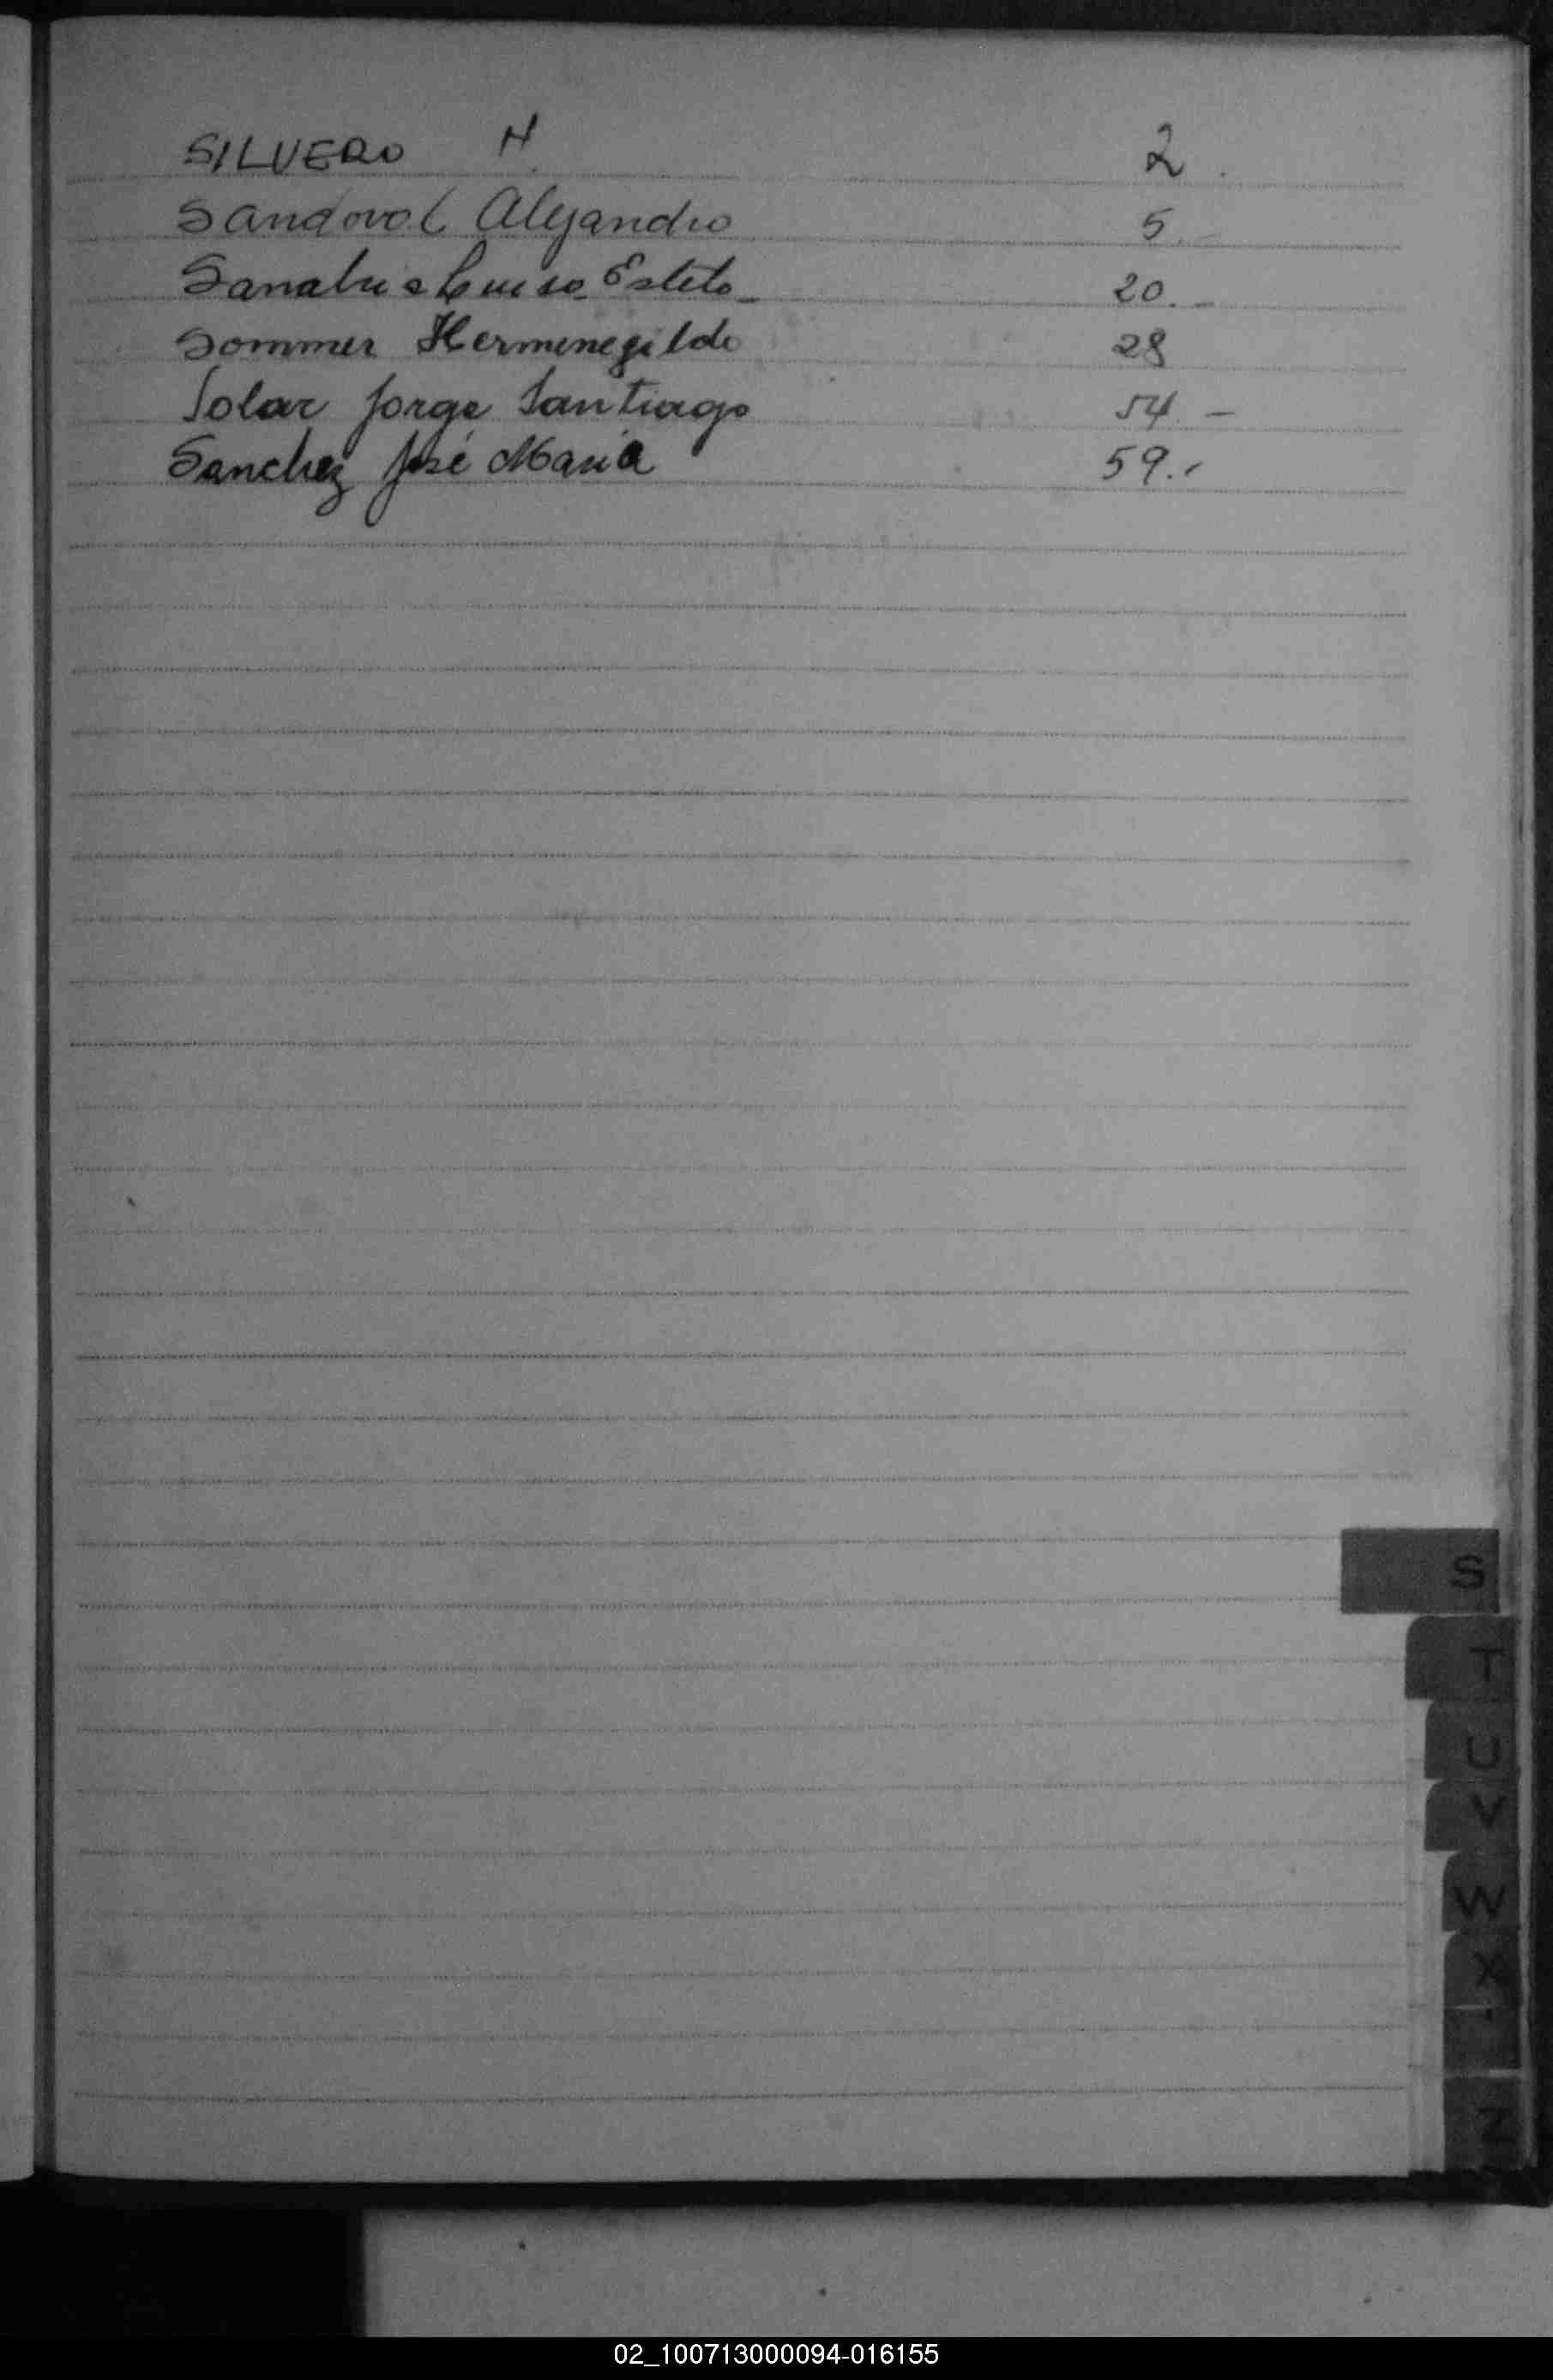 SILVERO H. 2.
Sandoval Alejandro 5.-
Sanabria Luisa Estela 20.-
Sommer Hermenegildo 28
Solar Jorge Santiago 54.-
Sanchez José Maria 59.-
S
T
U
V
W
X
Z
02_100713000094-016155